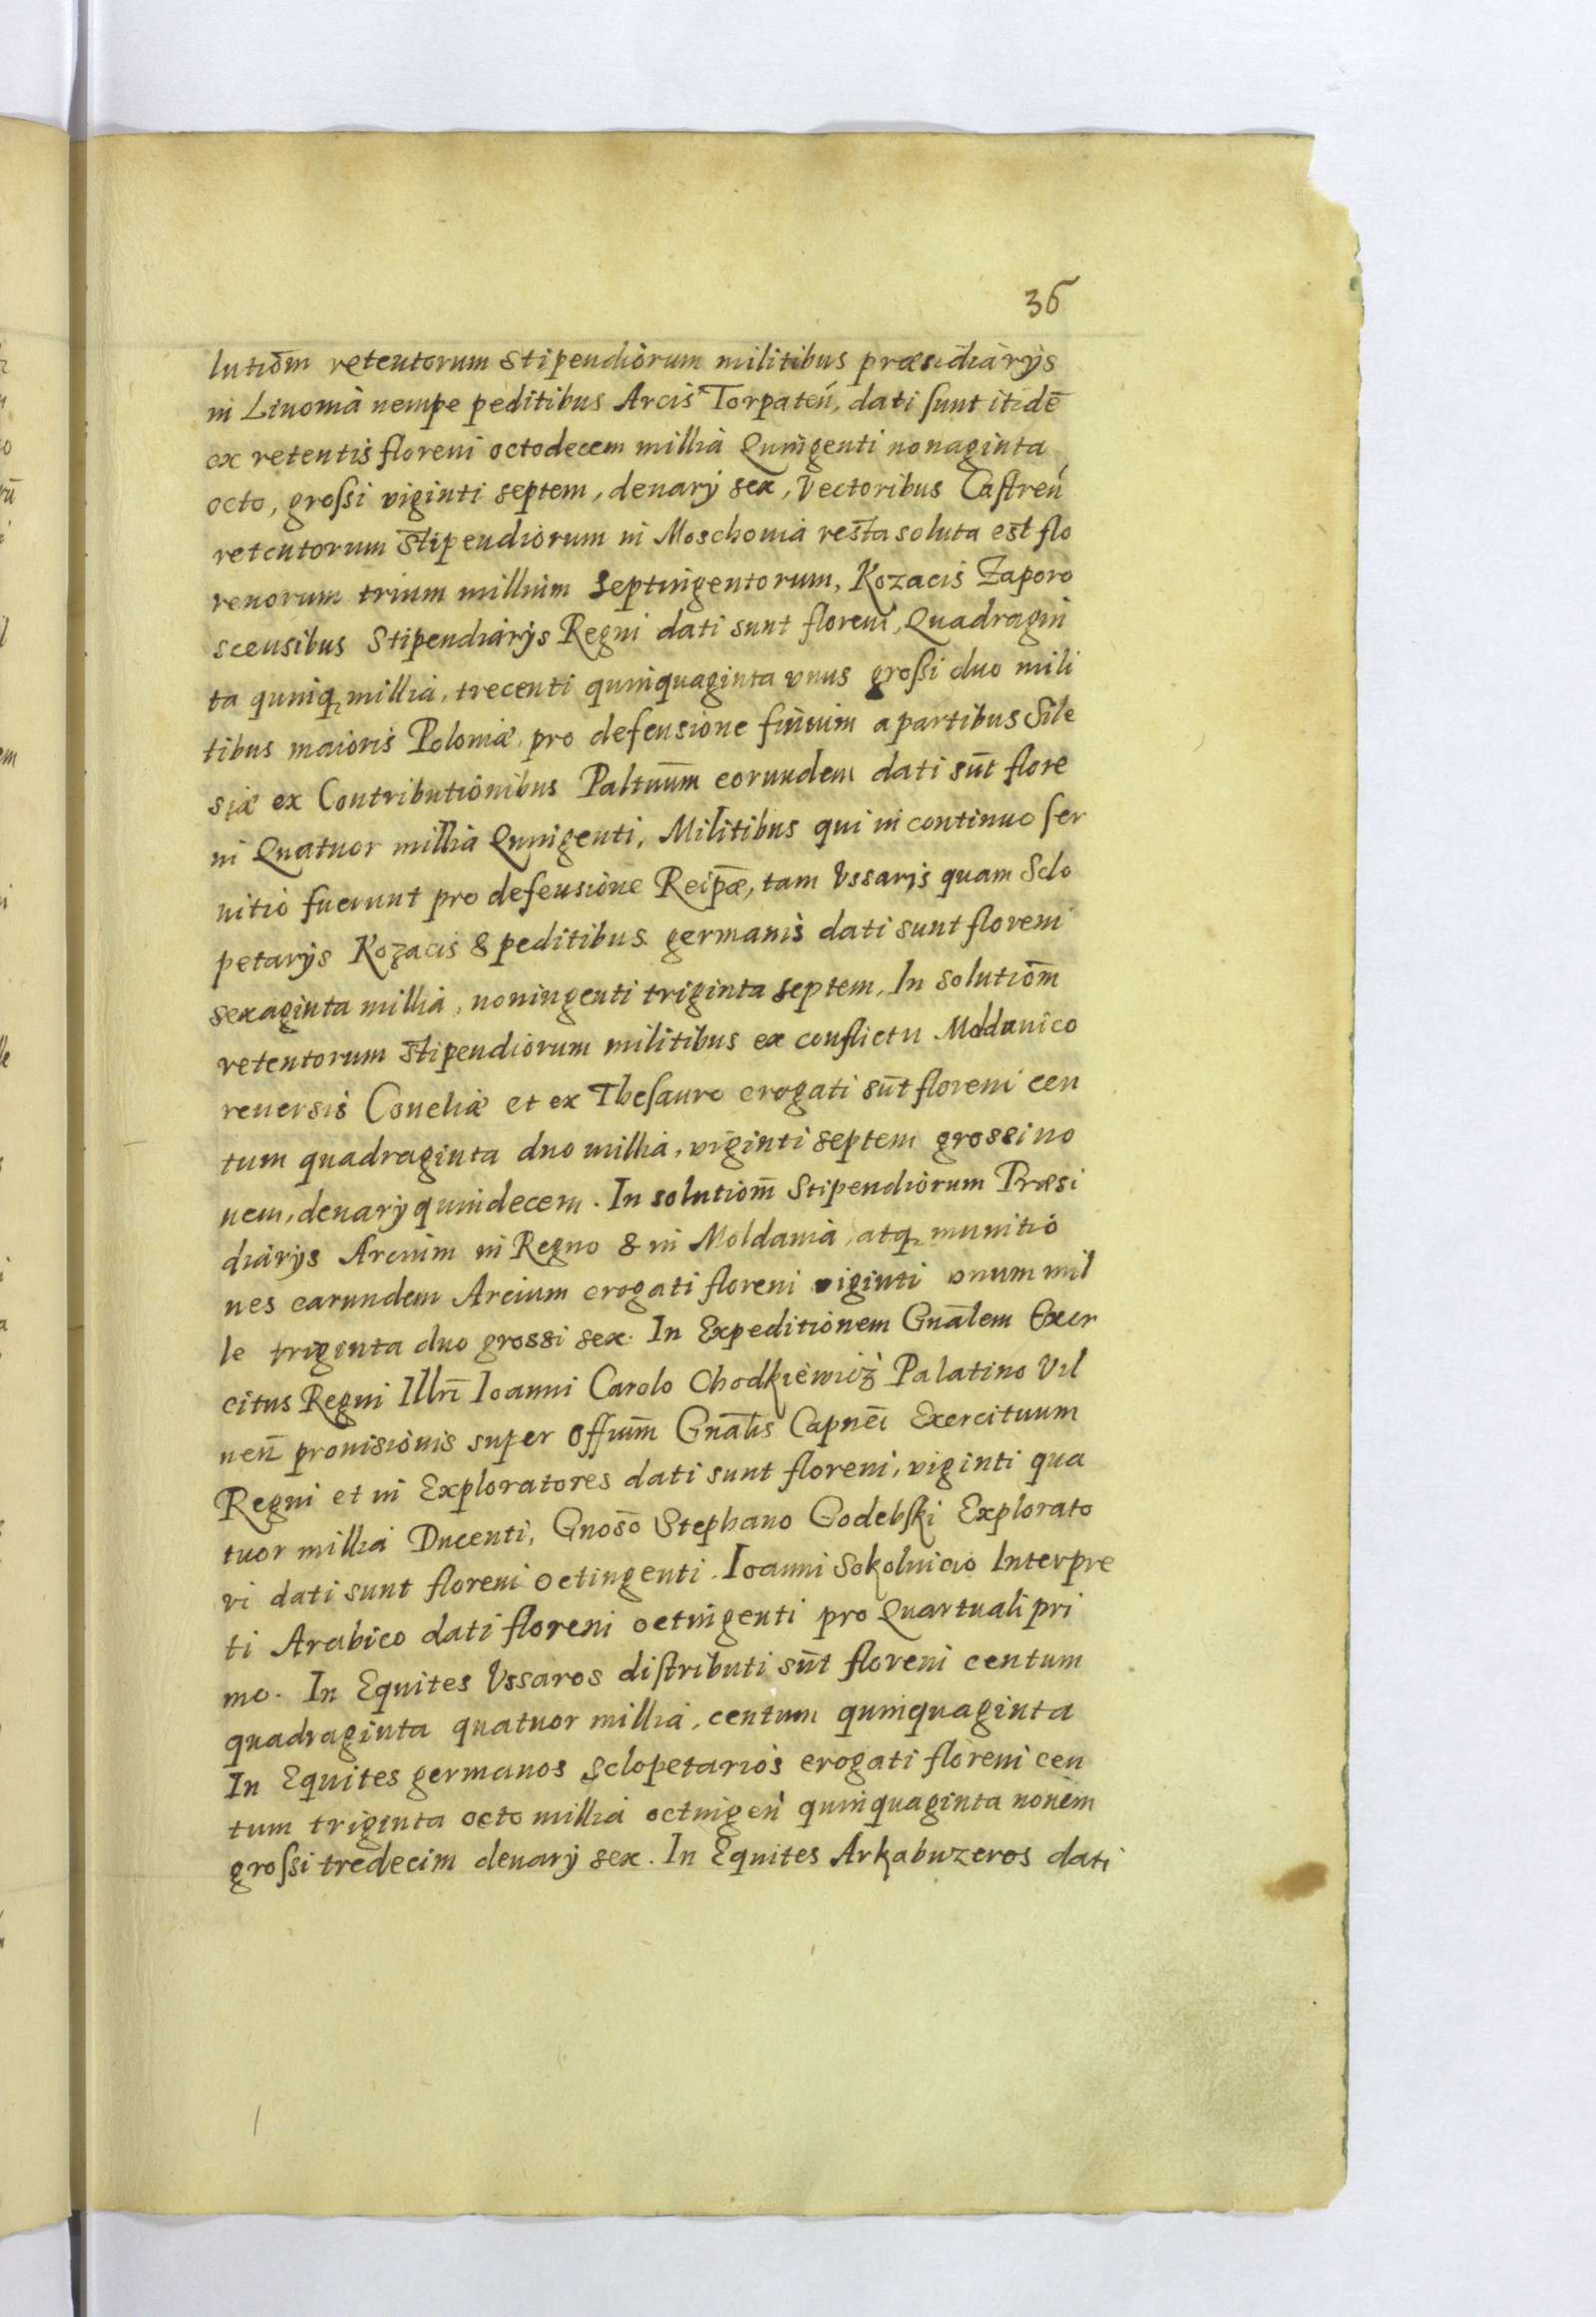 36
lutiom̄ retentorum stipendiorum militibus præsidiarys
in Liuonia nempe peditibus Arcis Torpateń, dati sunt itidē
ex retentis floreni octodecem millia Quingenti nonaginta
octo, grossi viginti septem, denary sex, Vectoribus Castreń
retentorum stipendiorum in Moschouia resta soluta est flo
renorum trium millium septingentorum, Kozacis Zaporo
scensibus Stipendiarys Regni dati sunt floreni, Quadragin
ta quinq, millia, trecenti quinquaginta vnus grossi duo mili
tibus maioris Poloniæ, pro defensione finium a partibus Sile
siæ ex Contributionibus Paltnūm eorundem dati sūt flore
ni Quatuor millia Quingenti, Militibus qui in continuo ser
uitio fuerunt pro defensione Reip̄æ, tam Vssaris quam Sclo
petarys Kozacis & peditibus germanis dati sunt floreni
sexaginta millia, noningenti triginta septem, In solutiom̄
retentorum stipendiorum militibus ex conflictu Moldauico
reuersis Coueliæ et ex Thesauro erogati sūt floreni cen
tum quadraginta duo millia, viginti septem grossi no
uem, denary quindecem. In solutiom̄ Stipendiorum Præsi
diarys Arcium in Regno & in Moldauia, atq, munitio
nes earundem Arcium erogati floreni viginti vnum mil
le triginta duo grossi sex. In Expeditionem Gnālem Exer
citus Regni Illrī Ioanni Carolo Chodkiewicz Palatino Vil
neń prouisionis super Offium̄ Gnālis Capneī Exercituum
Regni et in Exploratores dati sunt floreni, viginti qua
tuor millia Ducenti, Gnosō Stephano Godebski Explorato
ri dati sunt floreni octingenti. Ioanni Sokolnicio Interpre
ti Arabico dati floreni octingenti pro Quartuali pri
mo. In Equites Vssaros distributi sūt floreni centum
quadraginta quatuor millia, centum quinquaginta
In Equites germanos Sclopetarios erogati floreni cen
tum triginta octo millia octingeń quinquaginta nonem
grossi tredecim denary sex. In Equites Arkabuzeros dati